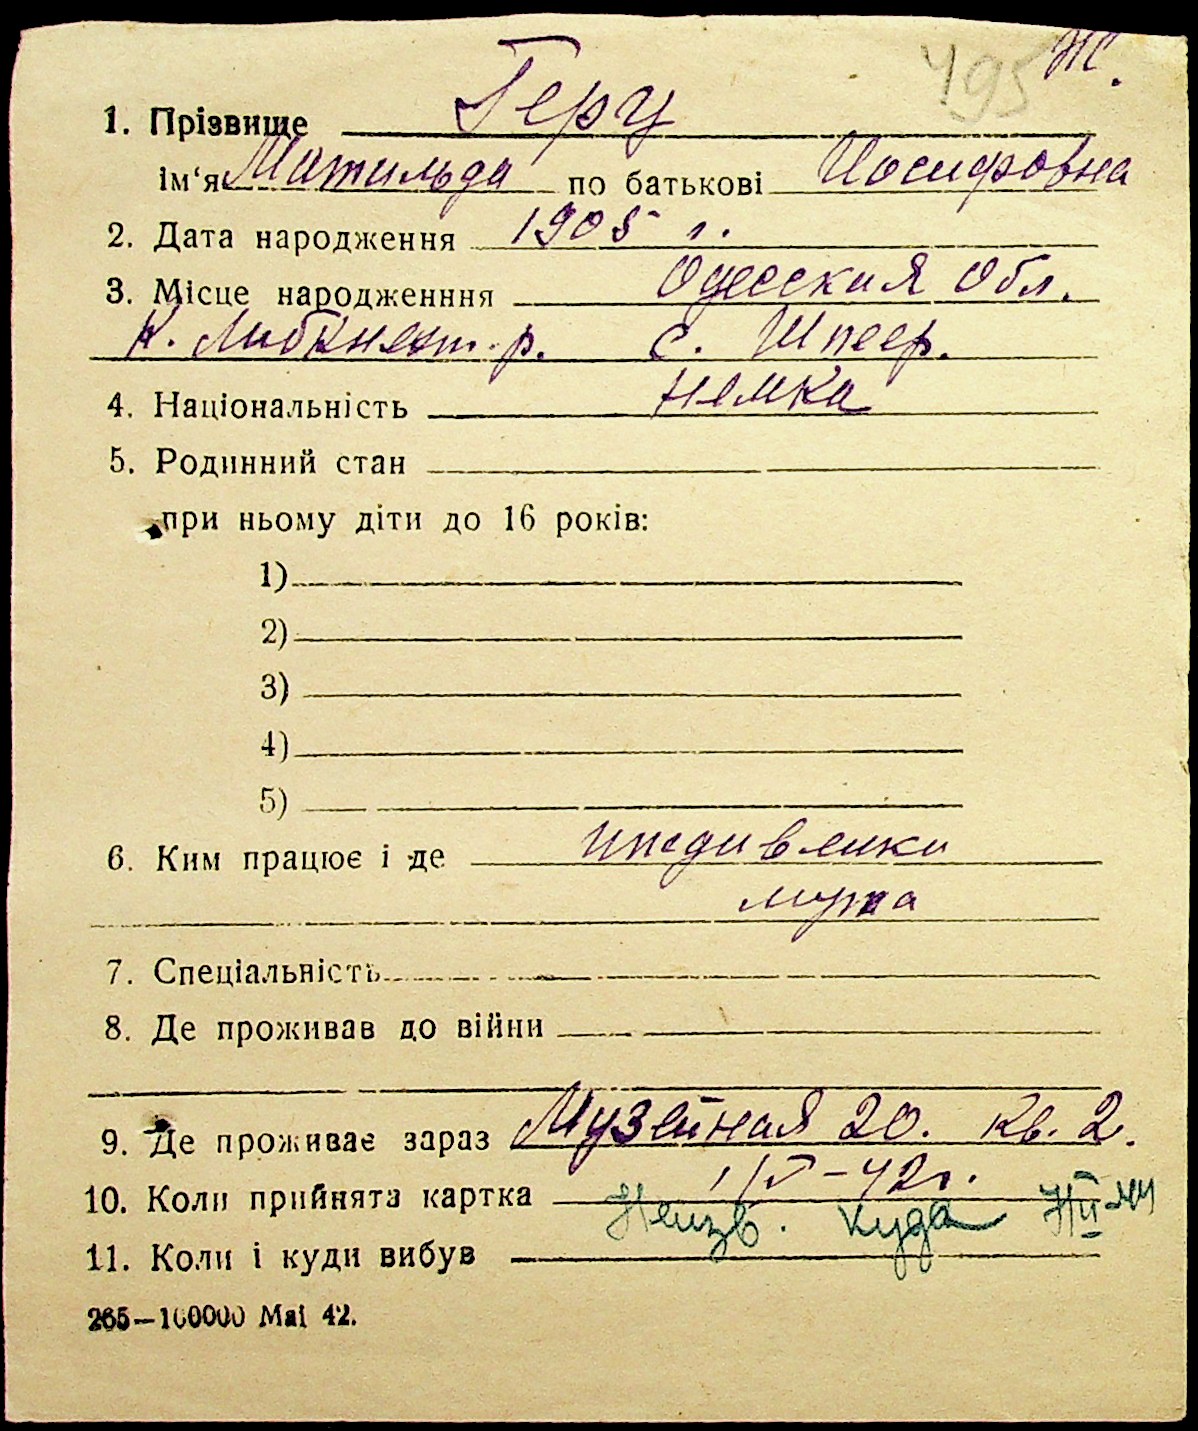 495 Ж.
1. Прізвище Герц
ім‘я Матильда по батькові Иосифовна
2. Дата народження 1905 г.
3. Місце народженння Одесский Обл.
К. Либкнехт. р. с. Шпеер.
4. Національність немка
5. Родинний стан
при ньому діти до 16 років:
1)
2)
3)
4)
5)
6. Ким працює і де
мужа
7. Спеціальність
8. Де проживав до війни
9. Де проживає зараз Музейная 20. кв. 2.
10. Коли прийнята картка 1/V-42г.
11. Коли і куди вибув Неизв. куда
265—100000 Mai 42.